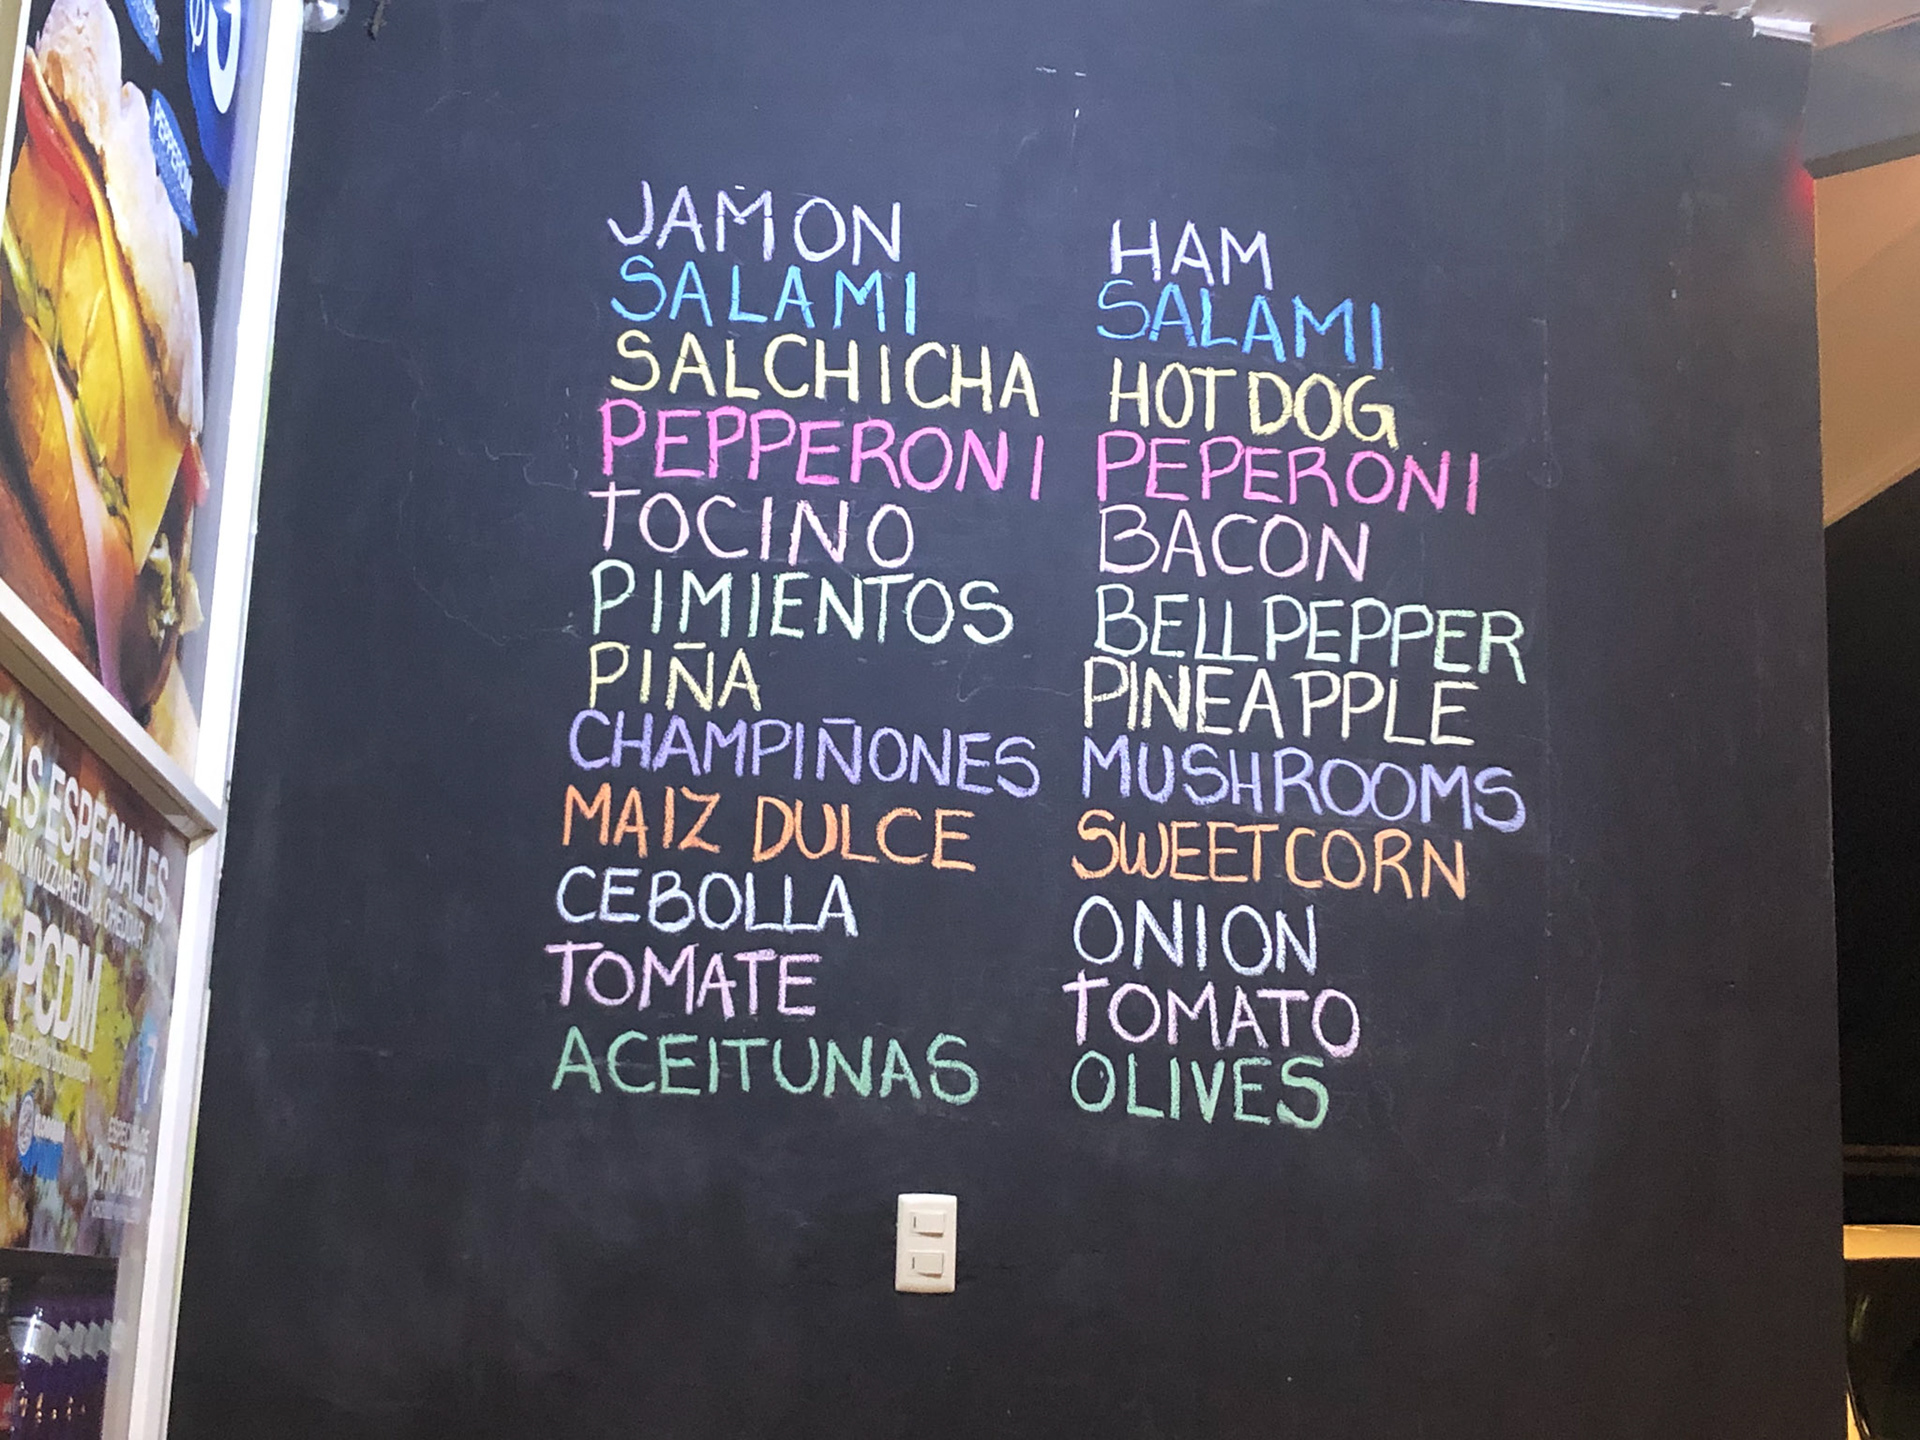 PEPPERONI
JAMON
SALAMI
SALCHICHA
PEPPERONI
TOCINO
PIMIENTOS
PIÑA
CHAMPIÑONES
MAIZ DULCE
CEBOLLA
TOMATE
ACEITUNAS
HAM
SALAMI
HOT DOG
PEPERONI
BACON
BELL PEPPER
PINEAPPLE
MUSHROOMS
SWEET CORN
ONION
TOMATO
OLIVES
ZAS ESPECIALES
MIX MUZZARELLA & CHEDDAR
PCDM
ESPECIAL DE
CHORIZO